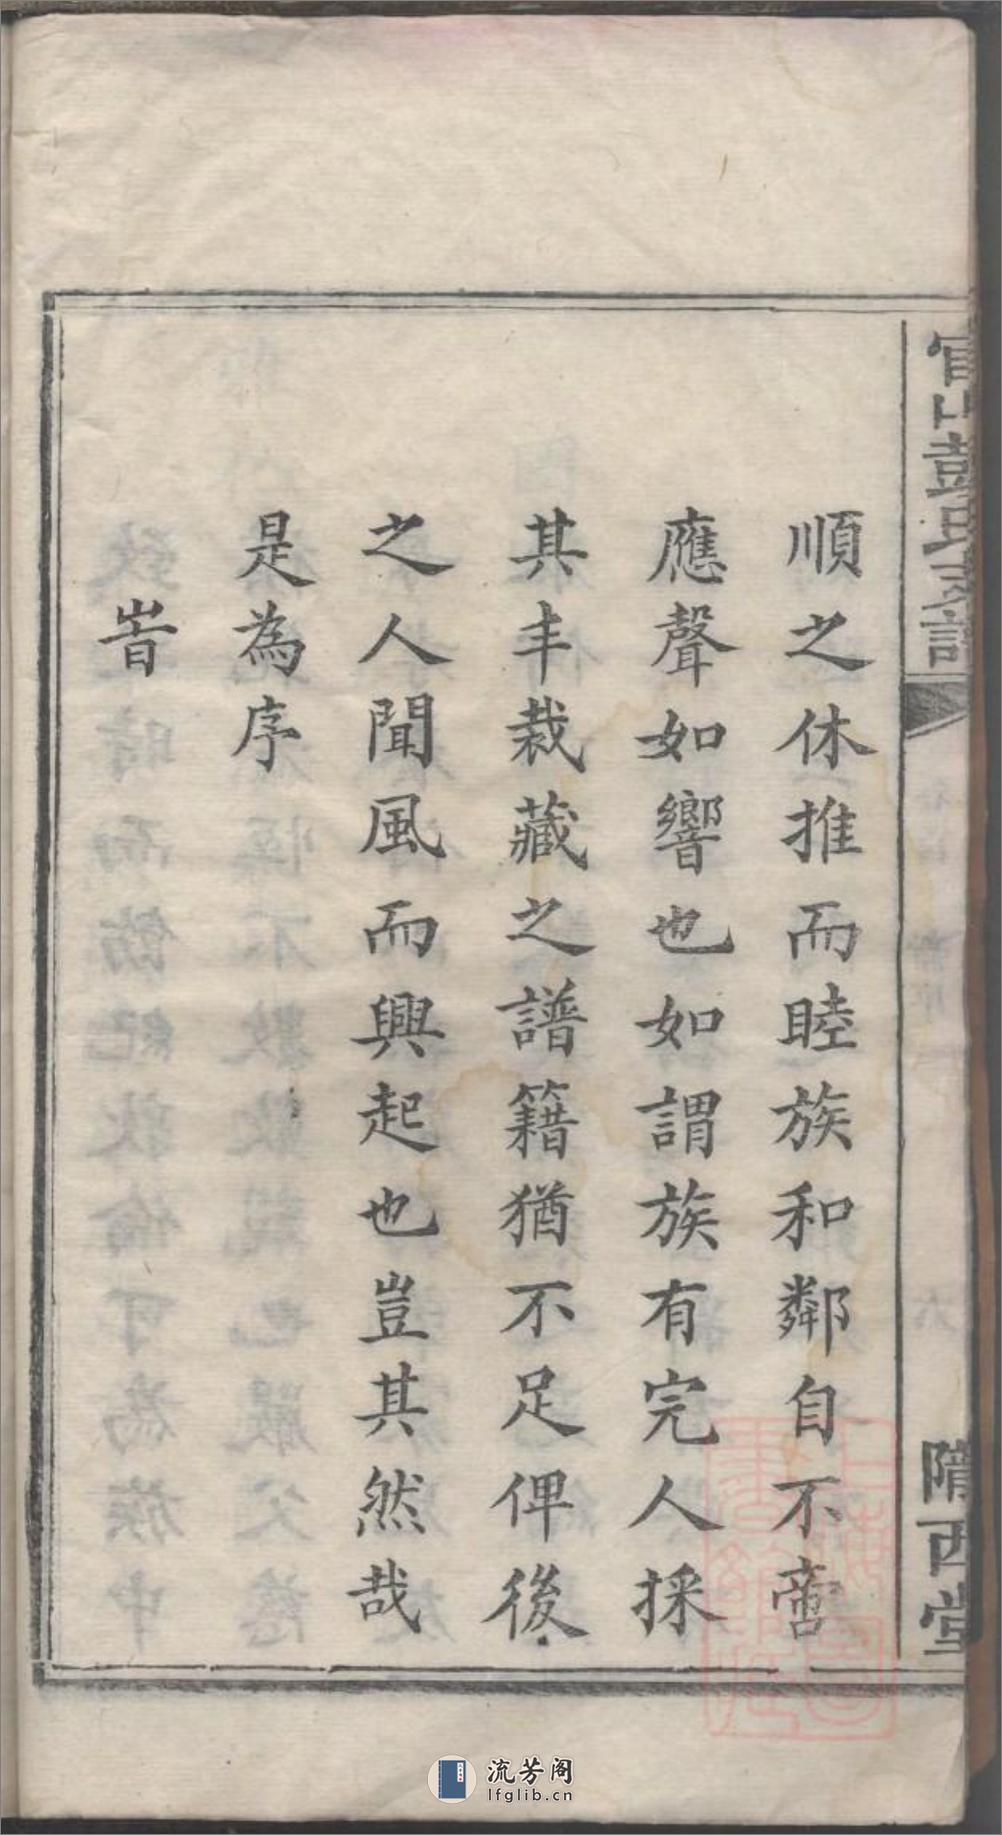 官山彭氏支譜
隋西堂
順之休推而睦族和鄰自不啻
應聲如響也如謂族有完人採
其丰裁藏之譜籍猶不足俾後
之人聞風而興起也豈其然哉
是為序
旹
流芳阁
lfglib.cn